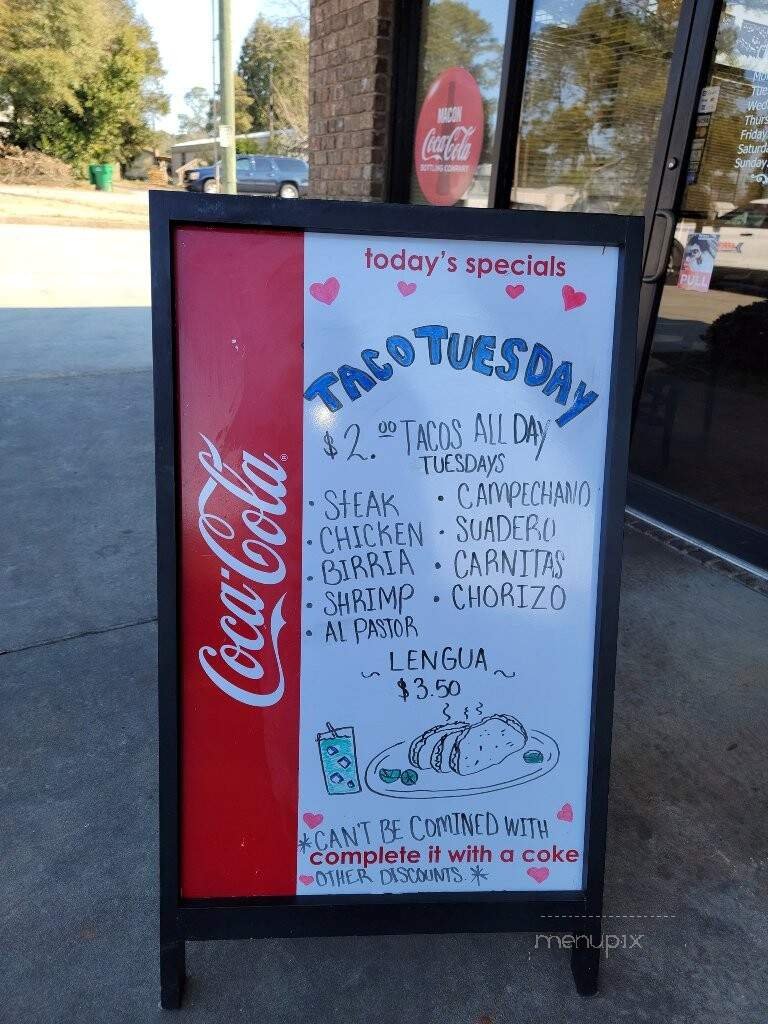 MACON
Coca-Cola
BOTTLING COMPANY
Friday
Sunday
PULL
today's specials
TACO TUESDAY
$2.00 TACOS ALL DAY
TUESDAYS
• STEAK
• CHICKEN
• BIRRIA
• SHRIMP
• AL PASTOR
• CAMPECHANO
• SUADERO
• CARNITAS
• CHORIZO
~ LENGUA ~
$3.50
Coca-Cola®
*CAN'T BE COMINED WITH
complete it with a coke
OTHER DISCOUNTS.*
menupix